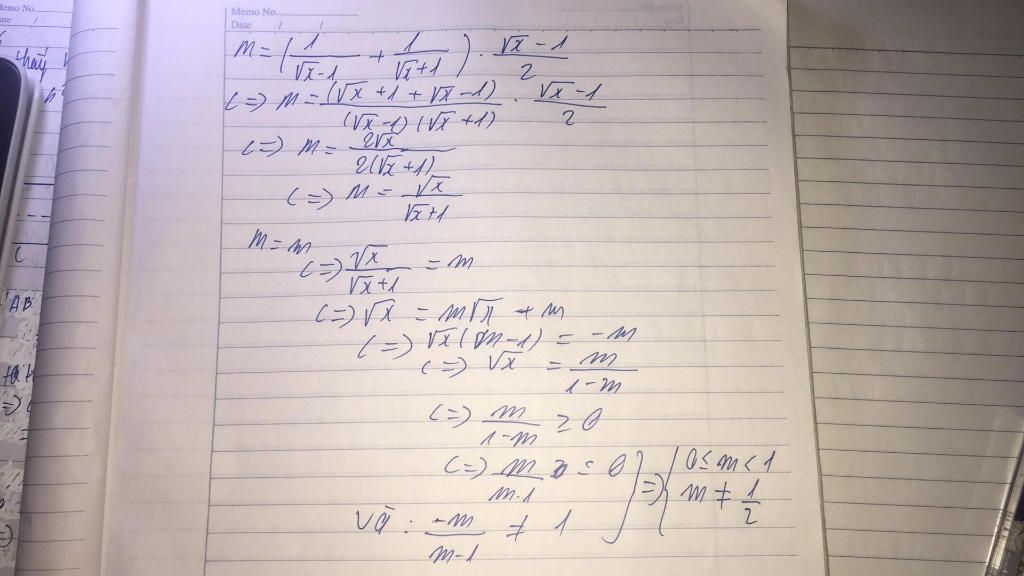 Memo No.
Date / /
M = (1/(√x-1) + 1/(√x+1)) . (√x - 1)/2
<=> M = (√x + 1 + √x - 1)/((√x - 1)(√x + 1)) . (√x - 1)/2
<=> M = 2√x/(2(√x + 1))
<=> M = √x/(√x+1)
M = m
<=> √x/(√x+1) = m
<=> √x = m√x + m
<=> √x(m-1) = -m
<=> √x = m/(1-m)
<=> m/(1-m) ≥ 0
<=> m/(m-1) = 0
Và : -m/(m-1) ≠ 1
} => { 0 ≤ m < 1
m ≠ 1/2
Memo No.
ate /
thay
C
AB
=>